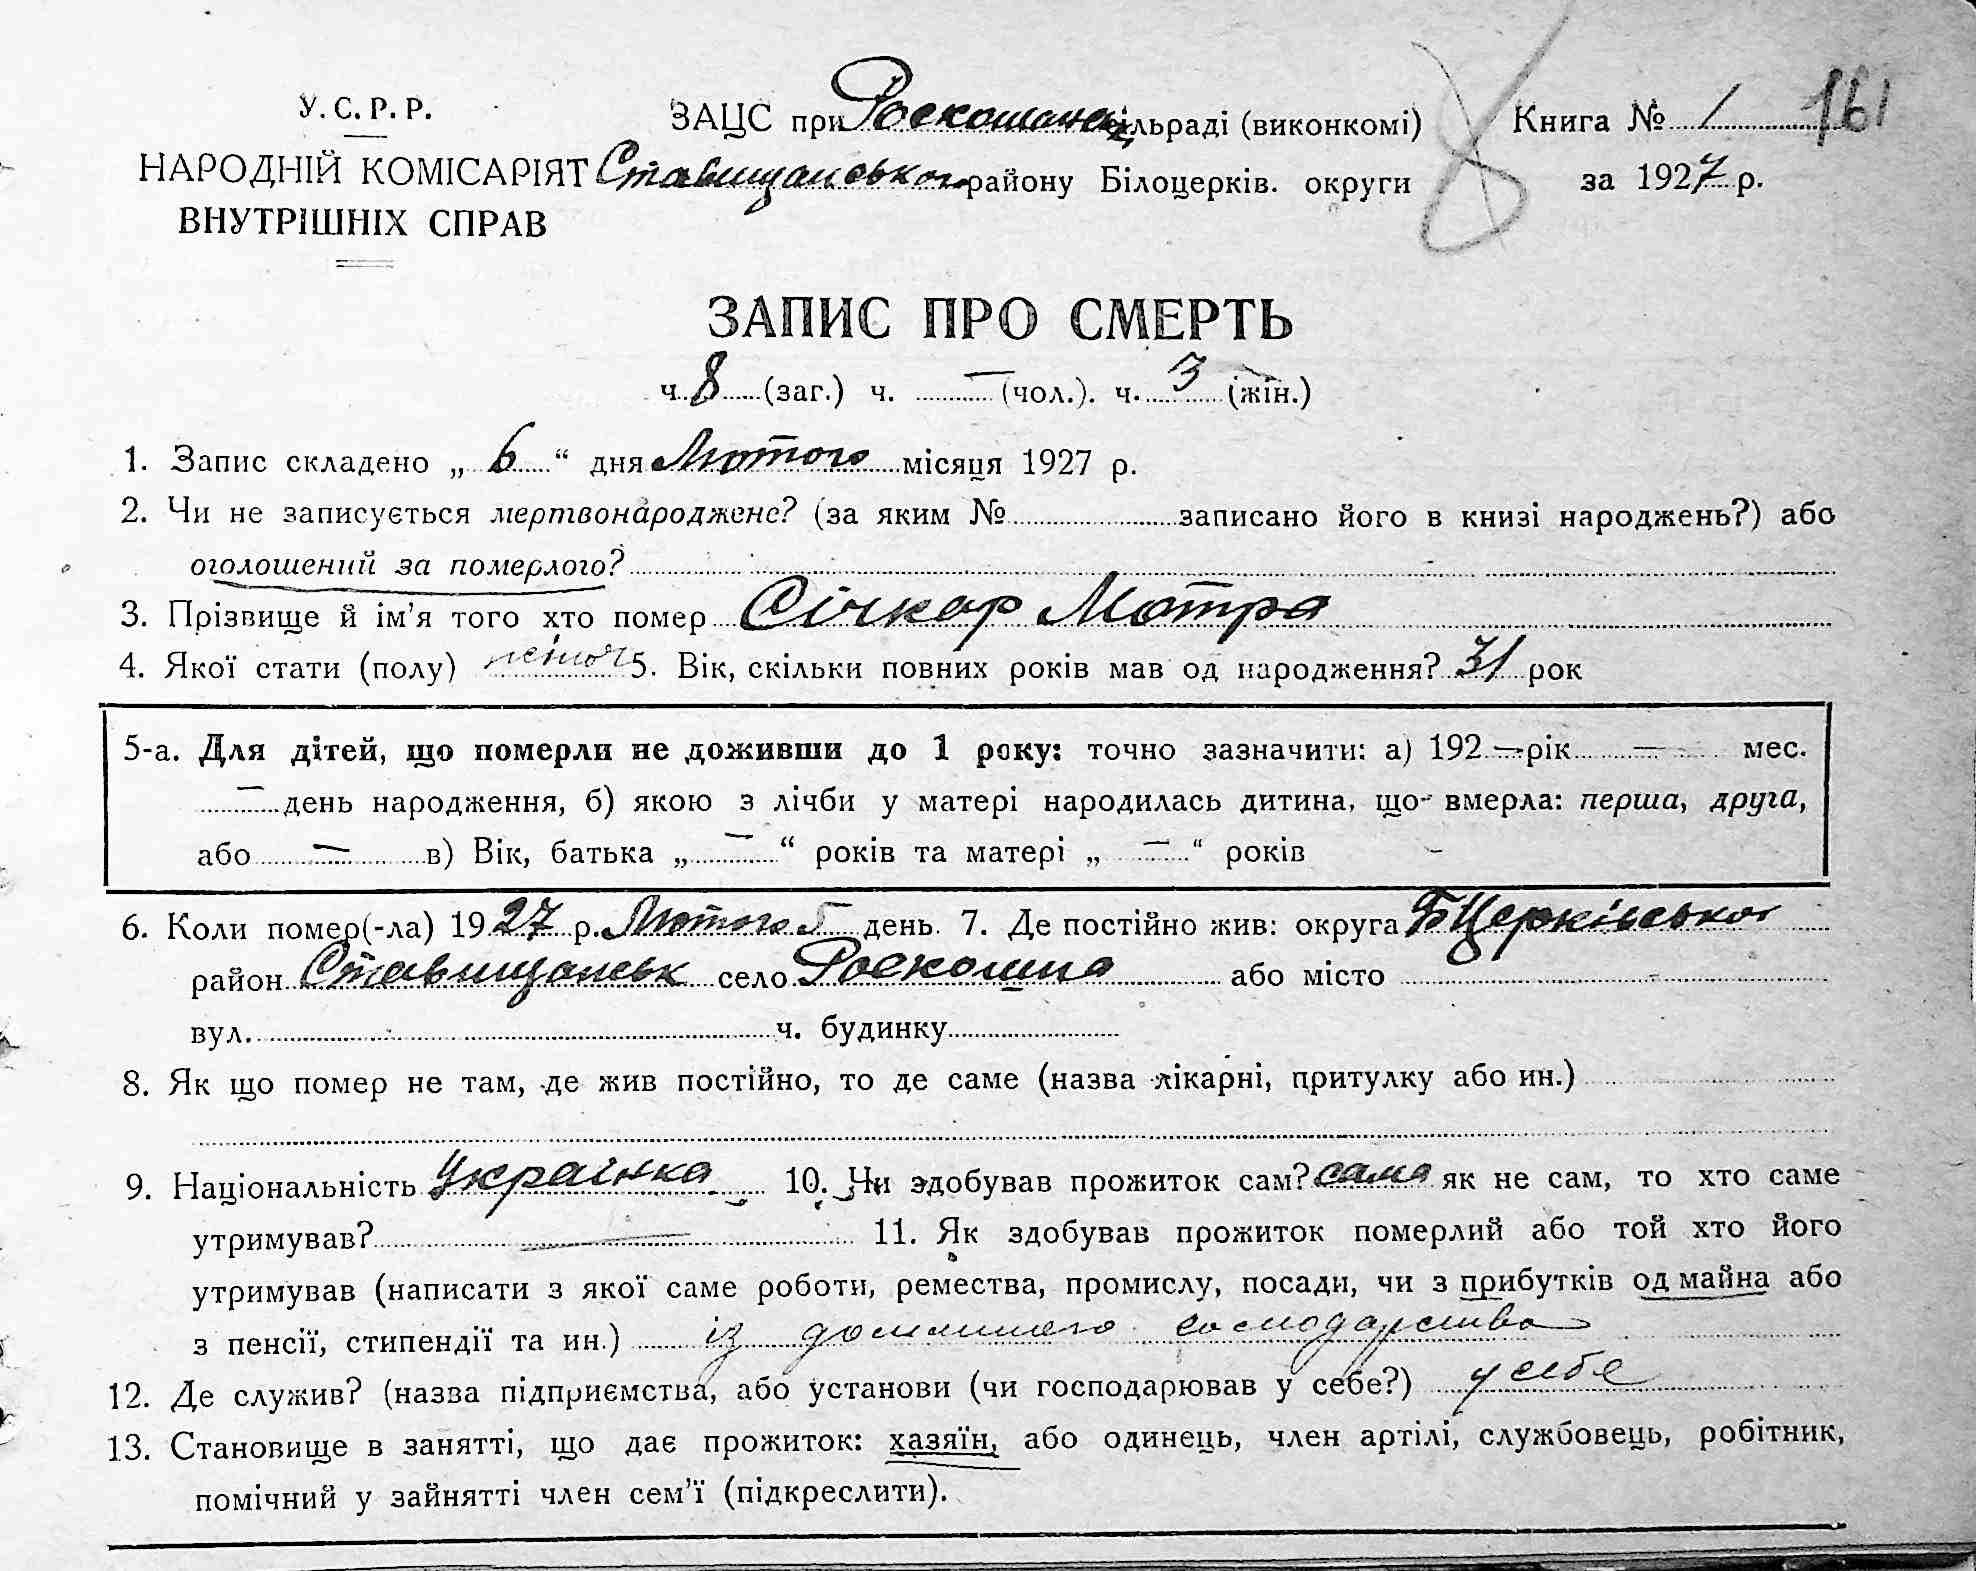 У. С. Р. Р.
НАРОДНІЙ КОМІСАРІЯТ
ВНУТРІШНІХ СПРАВ
ЗАЦС при Роскошанс сільраді (виконкомі)
Ставищанського району Білоцерків. округи
Книга № 1
161
за 1927 р.
8
ЗАПИС ПРО СМЕРТЬ
ч. 8 (заг.) ч. — (чол.). ч. 3 (жін.)
1. Запис складено „ 6 “ дня Лютого місяця 1927 р.
2. Чи не записується мертвонароджене? (за яким № записано його в книзі народжень?) або
оголошений за померлого?
3. Прізвище й ім’я того хто помер Січкар Мотра
4. Якої стати (полу) жіноч 5. Вік, скільки повних років мав од народження? 31 рок
5-а. Для дітей, що померли не доживши до 1 року: точно зазначити: а) 192 — рік — мес.
— день народження, б) якою з лічби у матері народилась дитина, що вмерла: перша, друга,
або — в) Вік, батька „ — “ років та матері „ — “ років
6. Коли помер(-ла) 1927 р. Лютого 5 день. 7. Де постійно жив: округа БЦерківської
район Ставищанськ село Роскошна або місто
вул. ч. будинку
8. Як що помер не там, де жив постійно, то де саме (назва лікарні, притулку або ин.)
9. Національність Українка 10. Чи здобував прожиток сам? сама як не сам, то хто саме
утримував? — 11. Як здобував прожиток померлий або той хто його
утримував (написати з якої саме роботи, ремества, промислу, посади, чи з прибутків од майна або
з пенсії, стипендії та ин.) із домашнего господарства
12. Де служив? (назва підприємства, або установи (чи господарював у себе?) у себе
13. Становище в занятті, що дає прожиток: хазяїн, або одинець, член артілі, службовець, робітник,
помічний у зайнятті член сем’ї (підкреслити).